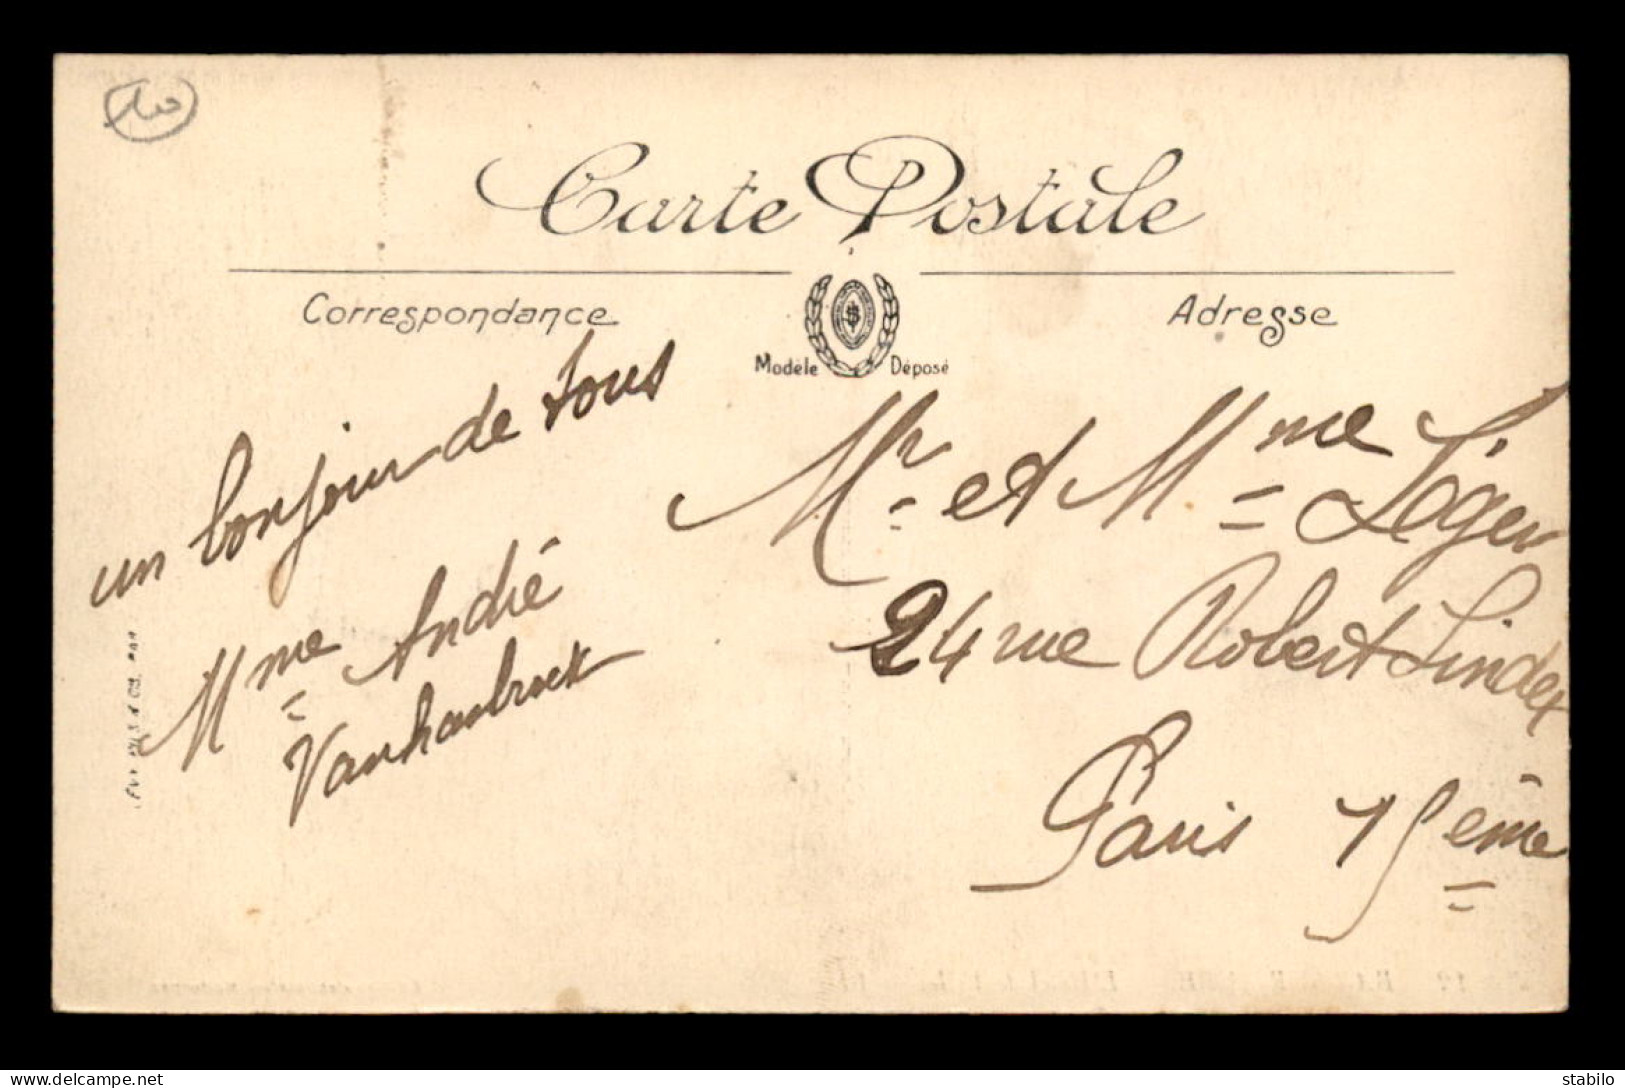 10
Carte Postale
Correspondance
Adresse
Modèle Déposé
un bonjour de tous
Mme André
Mr. et Mme Léger
24 rue Robert Lindet
Paris 15ème
delcampe.net
stabilo